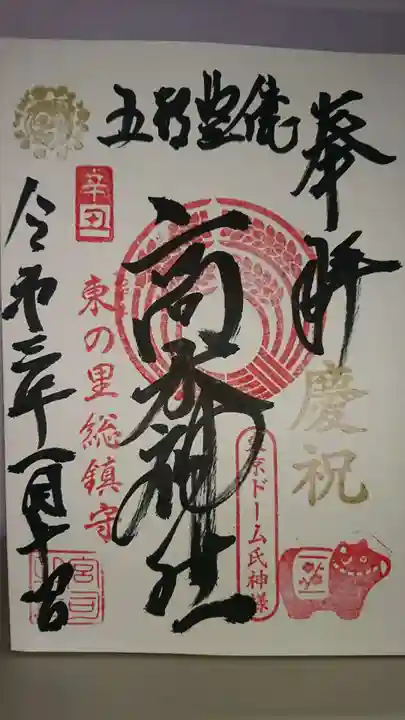 奉拝
慶祝
五穀豊穣
高
神社
東京ドーム氏神様
辛丑
東の里総鎮守
令和三年一月十
宮司